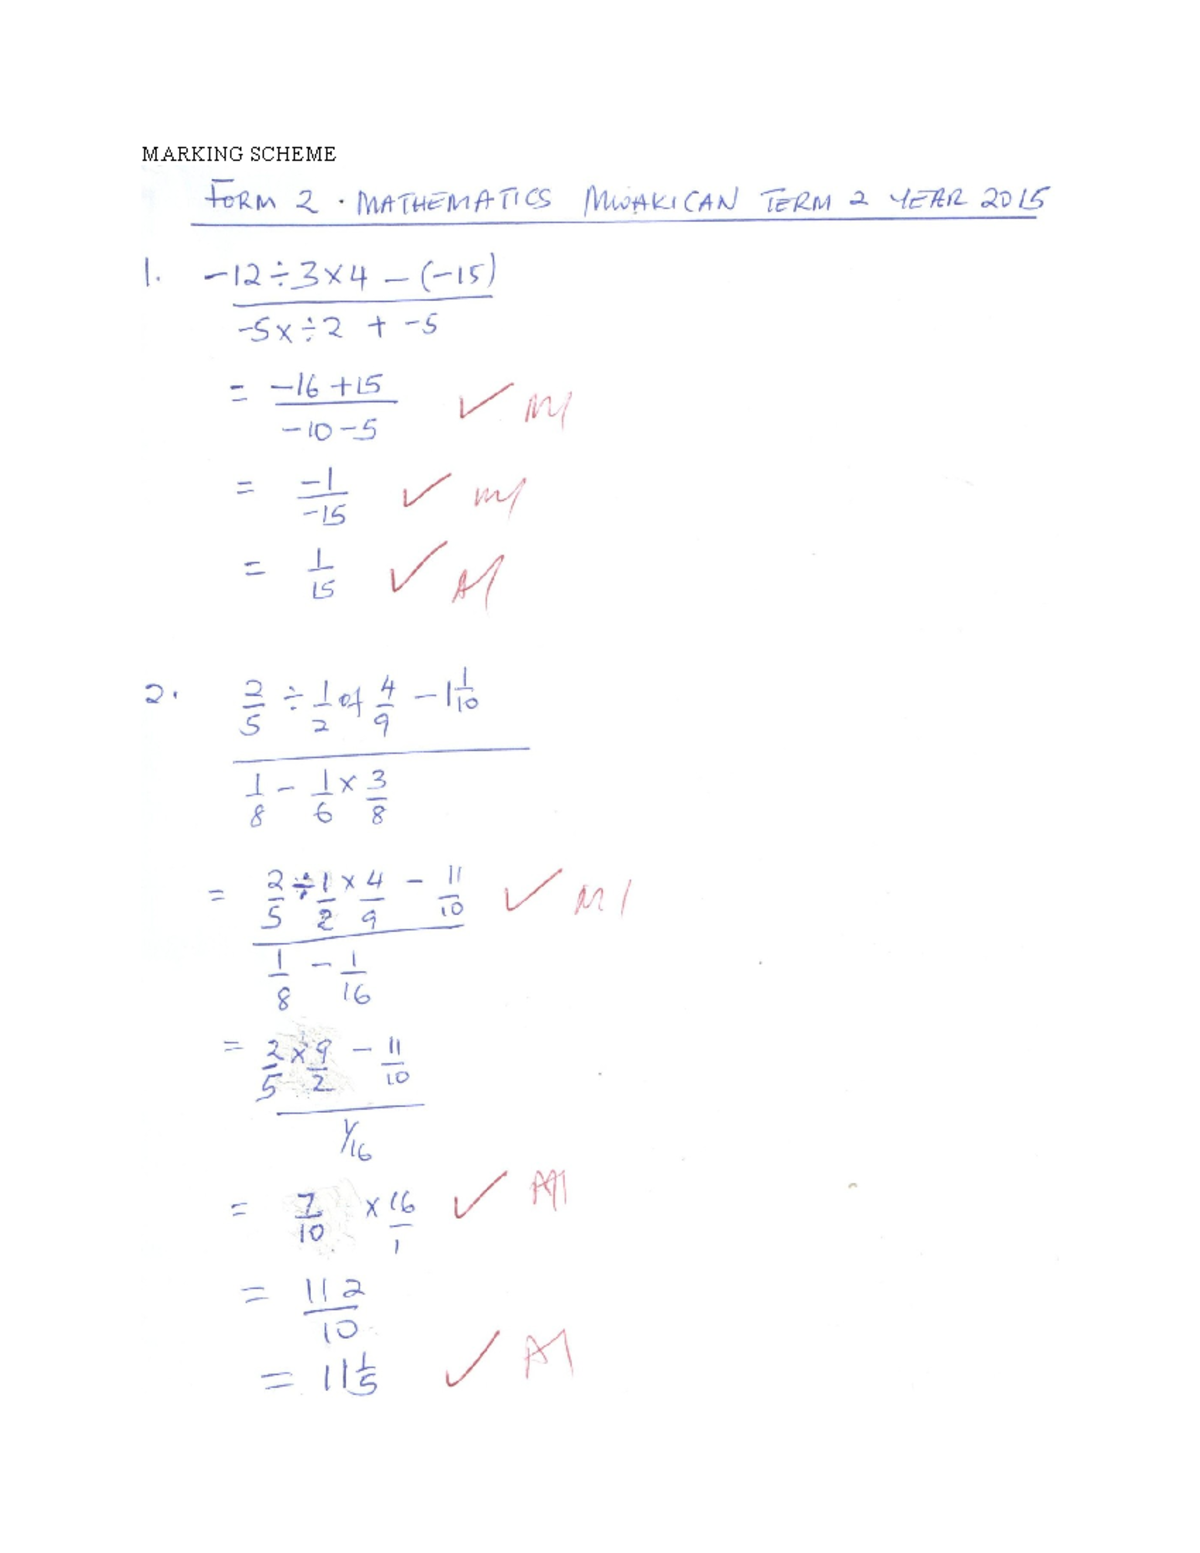 MARKING SCHEME
FORM 2 · MATHEMATICS MWAKICAN TERM 2 YEAR 2015
1. -12÷3×4 - (-15)
-5×÷2 + -5
= -16 +15 ✓ M1
-10-5
= -1 ✓ M1
-15
= 1 ✓ A1
15
2. 2/5 ÷ 1/2 of 4/9 - 1 1/10
1/8 - 1/6 × 3/8
= 2/5 ÷ 1/2 × 4/9 - 11/10 ✓ M1
1/8 - 1/16
= 2/5 × 9/2 - 11/10
1/16
= 7/10 × 16/1 ✓
= 112
10
= 11 1/5 ✓ A1